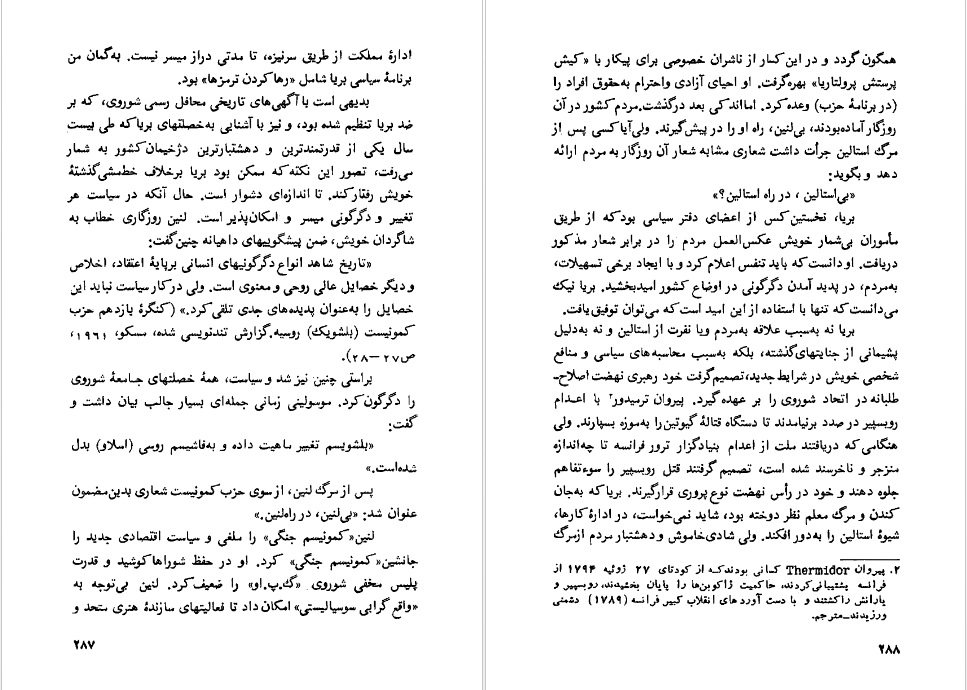 ادارهٔ مملکت از طریق سرنیزه، تا مدتی دراز میسر نیست. به‌گمان من
برنامهٔ سیاسی بریا شامل «رها کردن ترمزها» بود.
بدیهی است با آگهی‌های تاریخی محافل رسمی شوروی، که بر
ضد بریا تنظیم شده بود، و نیز با آشنایی به‌خصلتهای بریا که طی بیست
سال یکی از قدرتمندترین و دهشتبارترین دژخیمان کشور به شمار
می‌رفت، تصور این نکته که ممکن بود بریا برخلاف خط‌مشی گذشتهٔ
خویش رفتار کند. تا اندازه‌ای دشوار است. حال آنکه در سیاست هر
تغییر و دگرگونی میسر و امکان‌پذیر است. لنین روزگاری خطاب به
شاگردان خویش، ضمن پیشگوییهای داهیانه چنین گفت:
«تاریخ شاهد انواع دگرگونیهای انسانی برپایهٔ اعتقاد، اخلاص
و دیگر خصایل عالی روحی و معنوی است. ولی در کار سیاست نباید این
خصایل را به‌عنوان پدیده‌های جدی تلقی کرد.» (کنگرهٔ یازدهم حزب
کمونیست (بلشویک) روسیه. گزارش تندنویسی شده، مسکو، ۱۹۶۱،
ص ۲۷ – ۲۸).
براستی چنین نیز شد و سیاست، همهٔ خصلتهای جامعهٔ شوروی
را دگرگون کرد. موسولینی زمانی جمله‌ای بسیار جالب بیان داشت و
گفت:
«بلشویسم تغییر ماهیت داده و به‌فاشیسم روسی (اسلاو) بدل
شده‌است.»
پس از مرگ لنین، از سوی حزب کمونیست شعاری بدین‌مضمون
عنوان شد: «بی‌لنین، در راه لنین.»
لنین «کمونیسم جنگی» را ملغی و سیاست اقتصادی جدید را
جانشین «کمونیسم جنگی» کرد. او در حفظ شوراها کوشید و قدرت
پلیس مخفی شوروی «گ.پ.او» را ضعیف کرد. لنین بی‌توجه به
«واقع گرایی سوسیالیستی» امکان داد تا فعالیتهای سازندهٔ هنری متحد و
۲۸۷
همگون گردد و در این کار از ناشران خصوصی برای پیکار با «کیش
پرستش پرولتاریا» بهره گرفت. او احیای آزادی و احترام به‌حقوق افراد را
(در برنامهٔ حزب) وعده کرد. اما اندکی بعد درگذشت. مردم کشور در آن
روزگار آماده بودند، بی‌لنین، راه او را در پیش گیرند. ولی آیا کسی پس از
مرگ استالین جرأت داشت شعاری مشابه شعار آن روزگار به مردم ارائه
دهد و بگوید:
«بی‌استالین ، در راه استالین؟»
بریا، نخستین کس از اعضای دفتر سیاسی بود که از طریق
مأموران بی‌شمار خویش عکس‌العمل مردم را در برابر شعار مذکور
دریافت. او دانست که باید تنفس اعلام کرد و با ایجاد برخی تسهیلات،
به‌مردم، در پدید آمدن دگرگونی در اوضاع کشور امید بخشید. بریا نیک
می‌دانست که تنها با استفاده از این امید است که می‌توان توفیق یافت.
بریا نه به‌سبب علاقه به‌مردم و یا نفرت از استالین و نه به‌دلیل
پشیمانی از جنایتهای گذشته، بلکه به‌سبب محاسبه‌های سیاسی و منافع
شخصی خویش در شرایط جدید، تصمیم گرفت خود رهبری نهضت اصلاح‌ـ
طلبانه در اتحاد شوروی را بر عهده گیرد. پیروان ترمیدور۲ با اعدام
روبسپیر در صدد برنیامدند تا دستگاه قتالهٔ گیوتین را به‌موزه بسپارند. ولی
هنگامی که دریافتند ملت از اعدام بنیادگزار ترور فرانسه تا چه‌اندازه
منزجر و ناخرسند شده است، تصمیم گرفتند قتل روبسپیر را سوء‌تفاهم
جلوه دهند و خود در رأس نهضت نوع پروری قرار گیرند. بریا که به‌جان
کندن و مرگ معلم نظر دوخته بود، شاید نمی‌خواست، در ادارهٔ کارها،
شیوهٔ استالین را به‌دور افکند. ولی شادی خاموش و دهشتبار مردم از مرگ
۲. پیروان Thermidor کسانی بودند که از کودتای ۲۷ ژوئیه ۱۷۹۴ از
فرانسه پشتیبانی کردند، حاکمیت ژاکوبن‌ها را پایان بخشیدند، روبسپیر و
یارانش را کشتند و با دست آوردهای انقلاب کبیر فرانسه (۱۷۸۹) دشمنی
ورزیدند_مترجم.
۲۸۸